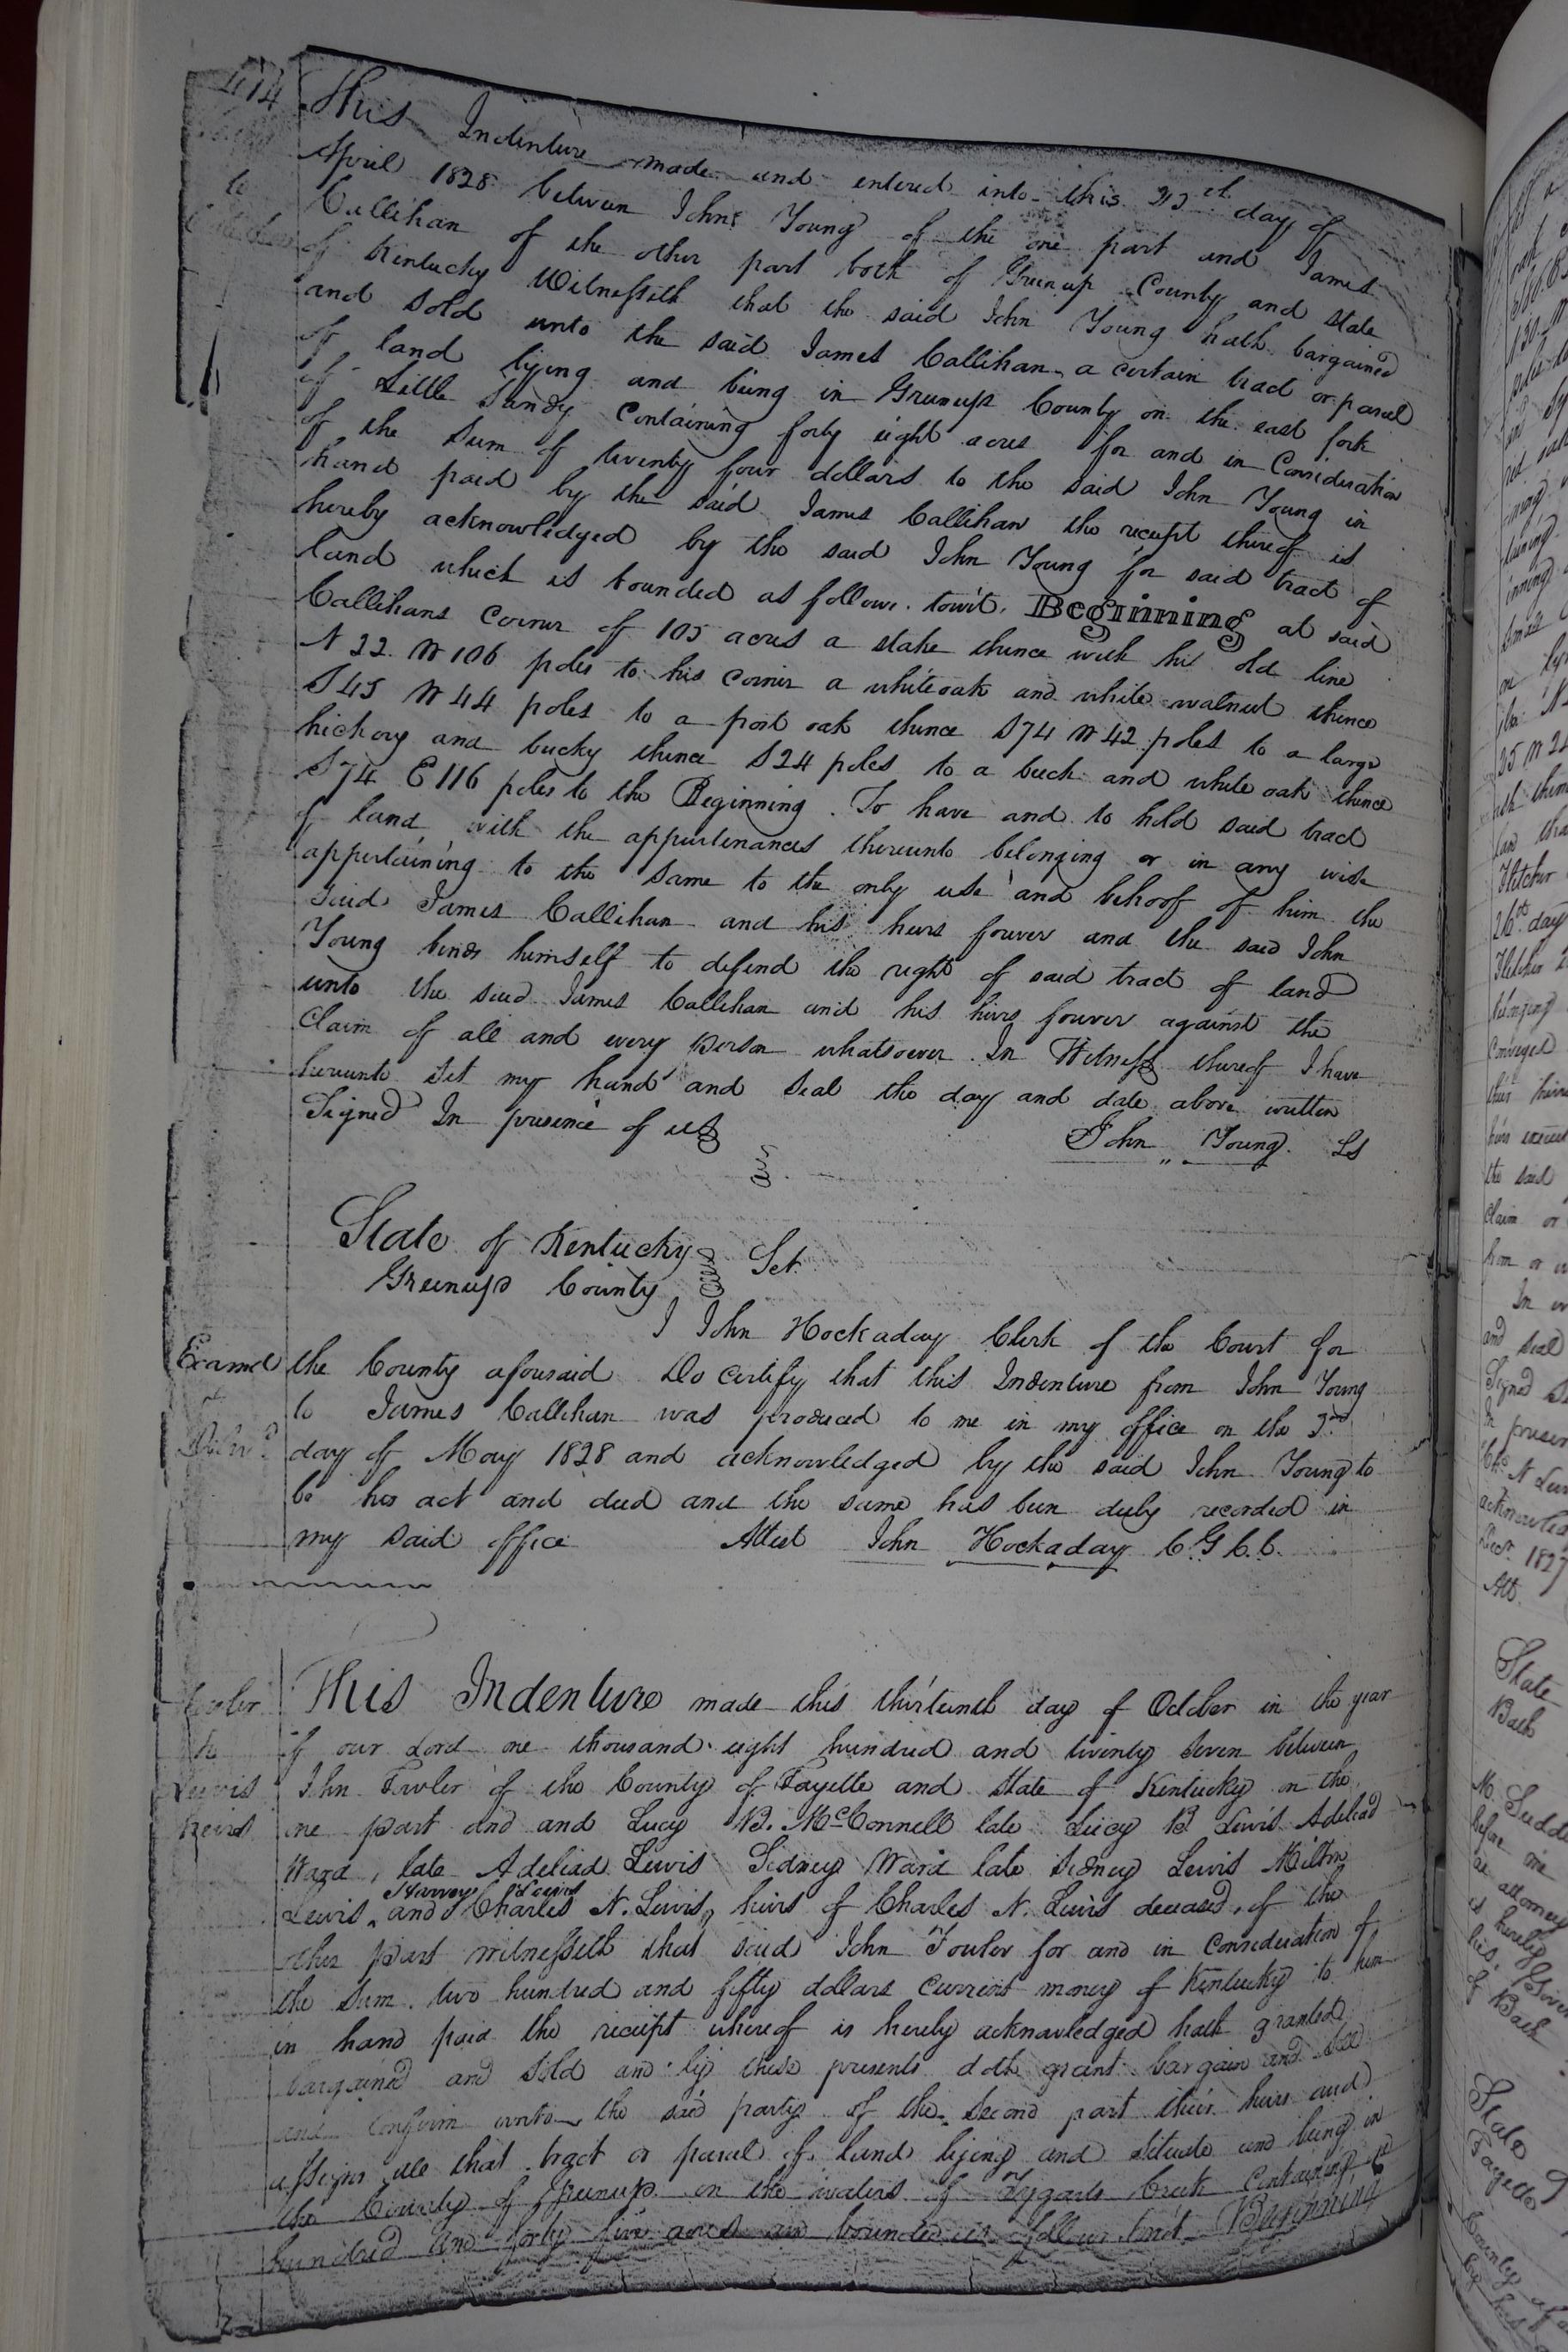 414
This Indenture made and entered into this day of
April 1828 between John Young of the one part and James
to
Callihan of the other part both of Greenup County and State
of Kentucky Witnesseth that the said John Young hath bargained
and sold unto the said James Callihan a certain tract or parcel
of land lying and being in Greenup County on the east fork
of Little Sandy Containing forty eight acres for and in Consideration
of the Sum of twenty four dollars to the said John Young in
hand paid by the said James Callihan the receipt thereof is
hereby acknowledged by the said John Young for said tract of
land which is bounded as follows. towit. Beginning at said
Callihans Corner of 105 acres a stake thence with his old line
N 22 W 106 poles to his corner a whiteoak and white walnut thence
S 45 W 44 poles to a post oak thence S 74 W 42 poles to a large
hickory and bucky thence S 24 poles to a beech and white oak thence
S 74 E 116 poles to the Beginning. To have and to hold said tract
of land with the appurtenances thereunto belonging or in any wise
appertaining to the same to the only use and behoof of him the
said James Callihan and his heirs forever and the said John
Young binds himself to defend the right of said tract of land
unto the said James Callihan and his heirs forever against the
Claim of all and every person whatsoever. In Witness thereof I have
hereunto Set my hand and Seal the day and date above written
Signed In presence of us
John Young. LS
State of Kentucky
Greenup County Sct.
I John Hockaday Clerk of the Court for
Examd the County aforesaid Do certify that this Indenture from John Young
to James Callihan was produced to me in my office on the 3rd
Delivd day of May 1828 and acknowledged by the said John Young to
be his act and deed and the same has been duly recorded in
my said office Attest John Hockaday C. G. C. C.
Fowler This Indenture made this thirteenth day of October in the year
to of our Lord one thousand eight hundred and twenty Seven between
Lewis John Fowler of the County of Fayette and State of Kentucky on the
heirs one part and and Lucy B. McConnell late Lucy B Lewis Adeliad
Ward, late Adeliad Lewis Sidney Ward late Sidney Lewis Milton
Harvey Lewis
Lewis, and Charles N. Lewis, heirs of Charles N. Lewis deceased, of the
other part witnesseth that said John Fowler for and in Consideration of
the Sum. two hundred and fifty dollars Current money of Kentucky to him
in hand paid the receipt whereof is hereby acknowledged hath granted
bargained and Sold and by these presents doth grant bargain and Sell
and Confirm unto the said party of the Second part their heirs and
assigns all that tract or parcel of land lying and Situate and being in
the County of Greenup on the waters of Tygarts Creek Containing
hundred and forty five acres and bounded as follows towit Beginning